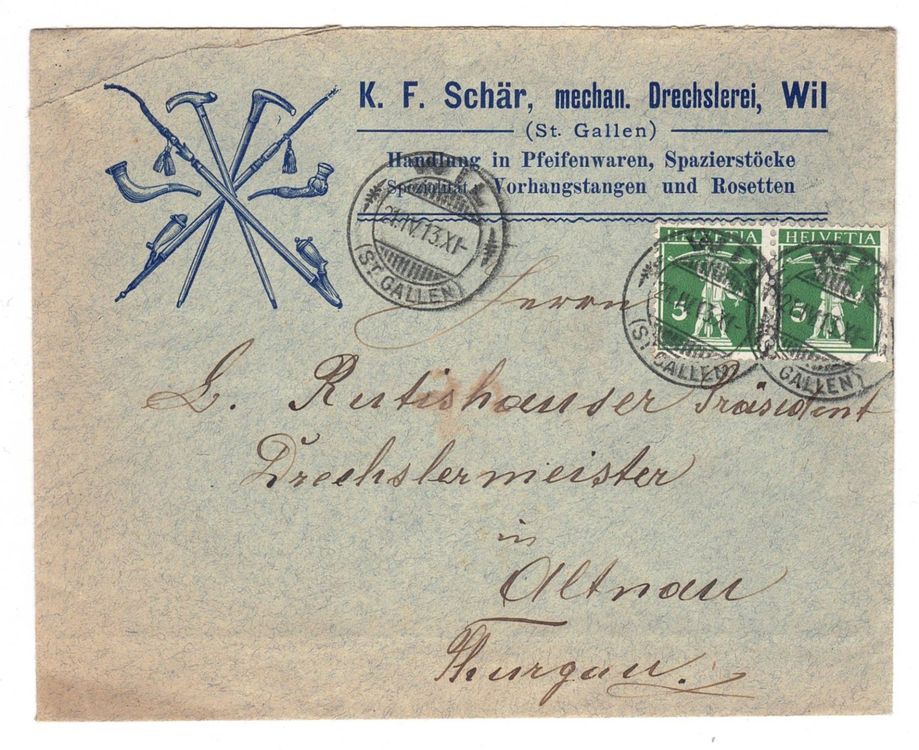 K. F. Schär, mechan. Drechslerei, Wil
(St. Gallen)
Handlung in Pfeifenwaren, Spazierstöcke
Spezialität: Vorhangstangen und Rosetten
WIL
21.IV.13.XI-
(ST. GALLEN)
HELVETIA HELVETIA
5 5
WIL WIL
21.IV.13.XI- 21.IV.13.XI-
(ST. GALLEN) (ST. GALLEN)
Herrn
L. Rutishauser Präsident
Drechslermeister
in
Altnau
Thurgau.